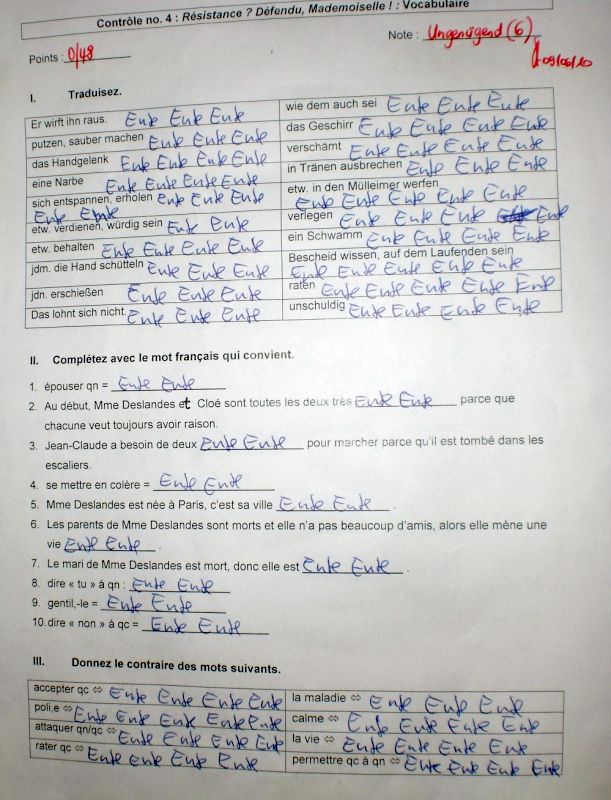 Contrôle no. 4 : Résistance ? Défendu, Mademoiselle ! : Vocabulaire
Note : Ungenügend (6)
Points : 0/48
09/06/10
I. Traduisez.
Er wirft ihn raus. Ente Ente Ente
wie dem auch sei Ente Ente Ente
putzen, sauber machen Ente Ente Ente
das Geschirr Ente Ente Ente Ente
das Handgelenk Ente Ente Ente Ente
verschämt Ente Ente Ente Ente
eine Narbe Ente Ente Ente Ente
in Tränen ausbrechen Ente Ente Ente
sich entspannen, erholen Ente Ente Ente
Ente Ente
etw. in den Mülleimer werfen
Ente Ente Ente Ente Ente
etw. verdienen, würdig sein Ente Ente
verlegen Ente Ente Ente Ente
etw. behalten Ente Ente Ente Ente
ein Schwamm Ente Ente Ente Ente
jdm. die Hand schütteln Ente Ente Ente
Bescheid wissen, auf dem Laufenden sein
Ente Ente Ente Ente Ente
jdn. erschießen Ente Ente Ente
raten Ente Ente Ente Ente Ente
Das lohnt sich nicht. Ente Ente Ente
unschuldig Ente Ente Ente Ente
II. Complétez avec le mot français qui convient.
1. épouser qn = Ente Ente
2. Au début, Mme Deslandes et Cloé sont toutes les deux très Ente Ente parce que
chacune veut toujours avoir raison.
3. Jean-Claude a besoin de deux Ente Ente pour marcher parce qu'il est tombé dans les
escaliers.
4. se mettre en colère = Ente Ente
5. Mme Deslandes est née à Paris, c'est sa ville Ente Ente .
6. Les parents de Mme Deslandes sont morts et elle n'a pas beaucoup d'amis, alors elle mène une
vie Ente Ente .
7. Le mari de Mme Deslandes est mort, donc elle est Ente Ente .
8. dire « tu » à qn : Ente Ente
9. gentil,-le = Ente Ente
10. dire « non » à qc = Ente Ente
III. Donnez le contraire des mots suivants.
accepter qc ⇔ Ente Ente Ente Ente
la maladie ⇔ Ente Ente Ente
poli,e ⇔ Ente Ente Ente Ente Ente
calme ⇔ Ente Ente Ente Ente
attaquer qn/qc ⇔ Ente Ente Ente Ente
la vie ⇔ Ente Ente Ente Ente
rater qc ⇔ Ente Ente Ente Ente
permettre qc à qn ⇔ Ente Ente Ente Ente